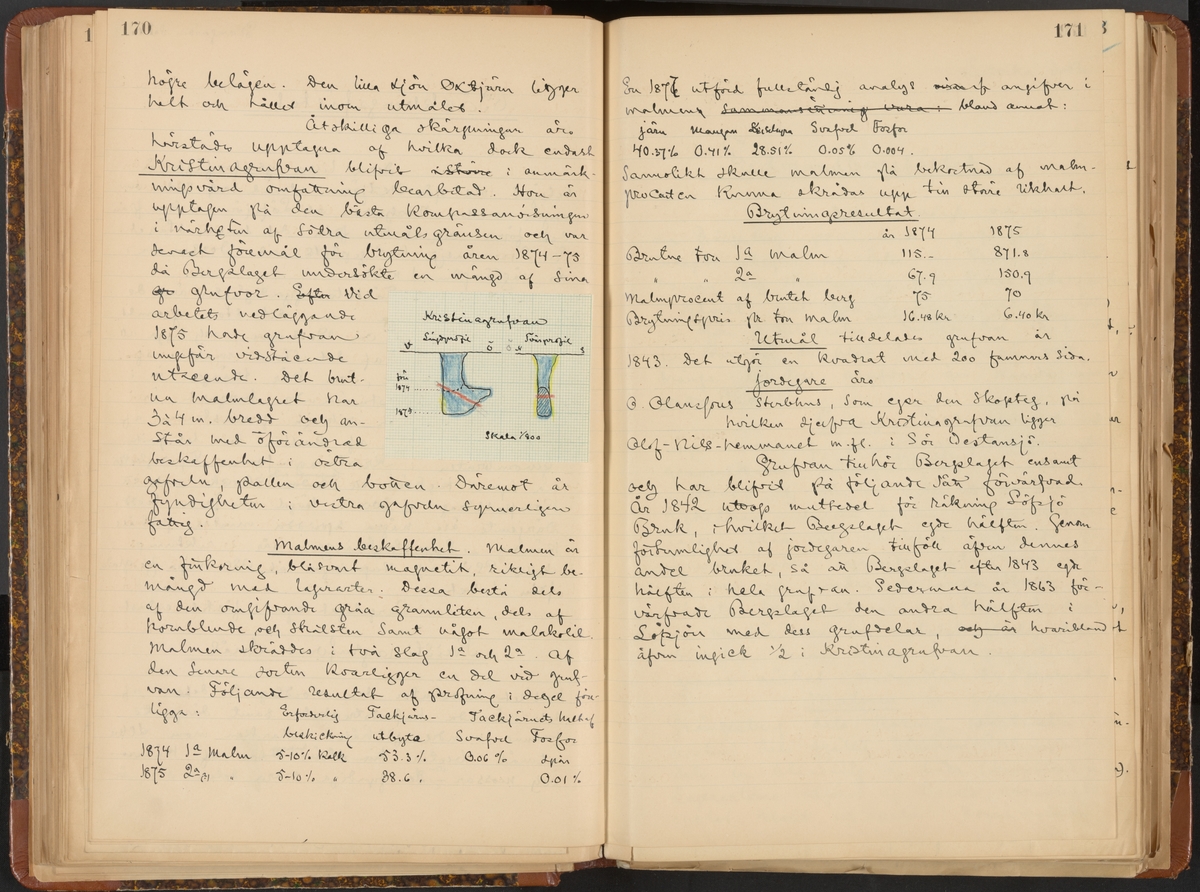 170
högre belägen. Den lilla sjön Oxtjärn ligger
helt och hållet inom utmålet.
Åtskilliga skärpningar äro
härstädes upptagna af hvilka dock endast
Kristinagrufvan blifvit i större i anmärk-
ningsvärd omfattning bearbetad. Hon är
upptagen på den bästa kompassanvisningen
i närheten af södra utmålsgränsen och var
senast föremål för brytning åren 1874-75
då Bergslaget undersökte en mängd af sina
gr grufvor. Efter Vid
arbetets nedläggande
1875 hade grufvan
ungefär vidstående
utseende. Det brut-
na malmlagret har
3 à 4 m. bredd och an-
står med oförändrad
beskaffenhet i östra
gafveln, pallen och botten. Däremot är
fyndigheten i vestra gafveln synnerligen
fattig.
Kristinagrufvan
Längdprofil Tvärprofil
V Ö N S
före
1874
1875
Skala 1/800
Malmens beskaffenhet. Malmen är
en finkornig, blåsvart magnetit, rikligt be-
mängd med lagerarter. Dessa bestå dels
af den omgifvande gråa granuliten, dels af
hornblende, och skölsten samt något malakolit.
Malmen skräddes i två slag 1a och 2a. Af
den senare sorten kvarligger en del vid gruf-
van. Följande resultat af profning i degel före-
ligga:
Erforderlig Tackjärns- Tackjärnets halt af
beskickning utbyte Svafvel Fosfor
1874 1a Malm 5-10% kalk 53.3% 0.06% spår
1875 2a " 5-10% " 38.6 . 0.01%
171
En 1877 utförd fullständig analys angifver i
malmens sammansättning vara: bland annat:
järn Mangan Kiselsyra Svafvel Fosfor
40.57% 0.41% 28.51% 0.05% 0.004.
Sannolikt skulle malmen på bekostnad af malm-
procenten kunna skrädas upp till större rikhalt.
Brytningsresultat.
år 1874 1875
Brutne ton 1a malm 115.- 871.8
" " 2a " 67.9 150.9
Malmprocent af brutet berg 75 70
Brytningspris pr ton malm 16.48 kr 6.40 kr
Utmål tilldelades grufvan år
1843. Det utgör en kvadrat med 200 famnars sida.
Jordegare äro
O. Olausfons Sterbhus, som eger den Skogsteg, på
hvilken sjelfva Kristinagrufvan ligger
Olof-Nils-hemmanet m.fl. i Sör Vestansjö.
Grufvan tillhör Bergslaget ensamt
och har blifvit på följande sätt förvärfvad.
År 1842 uttogs mutsedel för räkning Löfsjö
Bruk, i hvilket Bergslaget egde hälften. Genom
försumlighet af jordegaren tillföll äfven dennes
andel bruket, så att Bergslaget efter 1843 egde
hälften i hela grufvan. Sedermera år 1863 för-
värfvade Bergslaget den andra hälften i
Löfsjön med dess grufdelar, och är hvaribland
äfven ingick 1/2 i Kristinagrufvan.